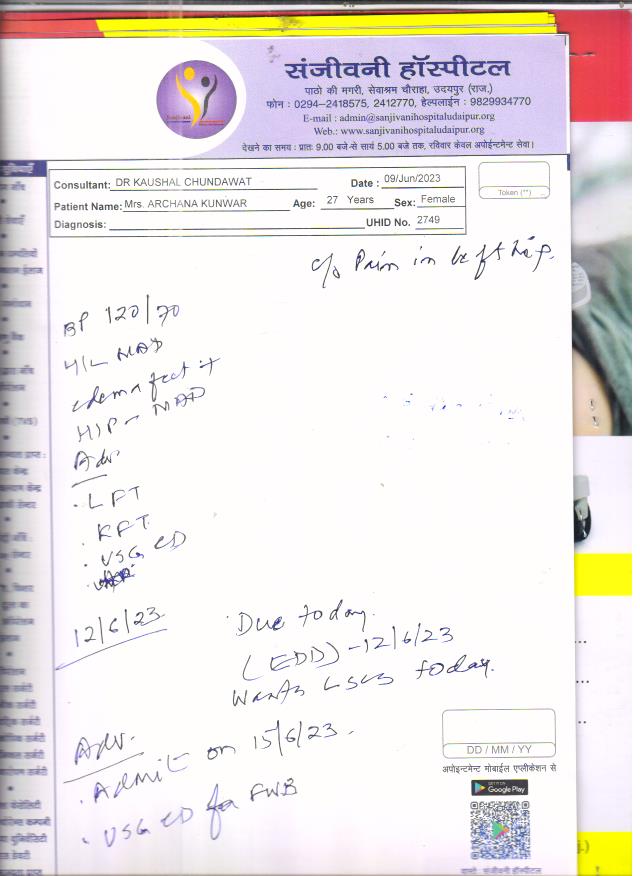 संजीवनी हॉस्पीटल
पाठो की मगरी, सेवाश्रम चौराहा, उदयपुर (राज.)
फोन : 0294-2418575, 2412770, हेल्पलाईन : 9829934770
E-mail : admin@sanjivanihospitaludaipur.org
Web.: www.sanjivanihospitaludaipur.org
देखने का समय : प्रातः 9.00 बजे से सायं 5.00 बजे तक, रविवार केवल अपोईन्टमेन्ट सेवा।
Consultant: DR KAUSHAL CHUNDAWAT Date : 09/Jun/2023
Patient Name: Mrs. ARCHANA KUNWAR Age: 27 Years Sex: Female
Token (**)
Diagnosis: UHID No. 2749
c/o Pain in left hip.
BP 120/70
H/L NAD
edema feet +
HIP - NAD
Adv.
. LFT
. KFT
. USG CD
12/6/23
Due today.
(EDD) - 12/6/23
Wants LSCS today.
Adv.
. Admit on 15/6/23.
. USG CD for FWB
DD / MM / YY
अपोइन्टमेन्ट मोबाईल एप्लीकेशन से
Google Play
संजीवनी हॉस्पीटल